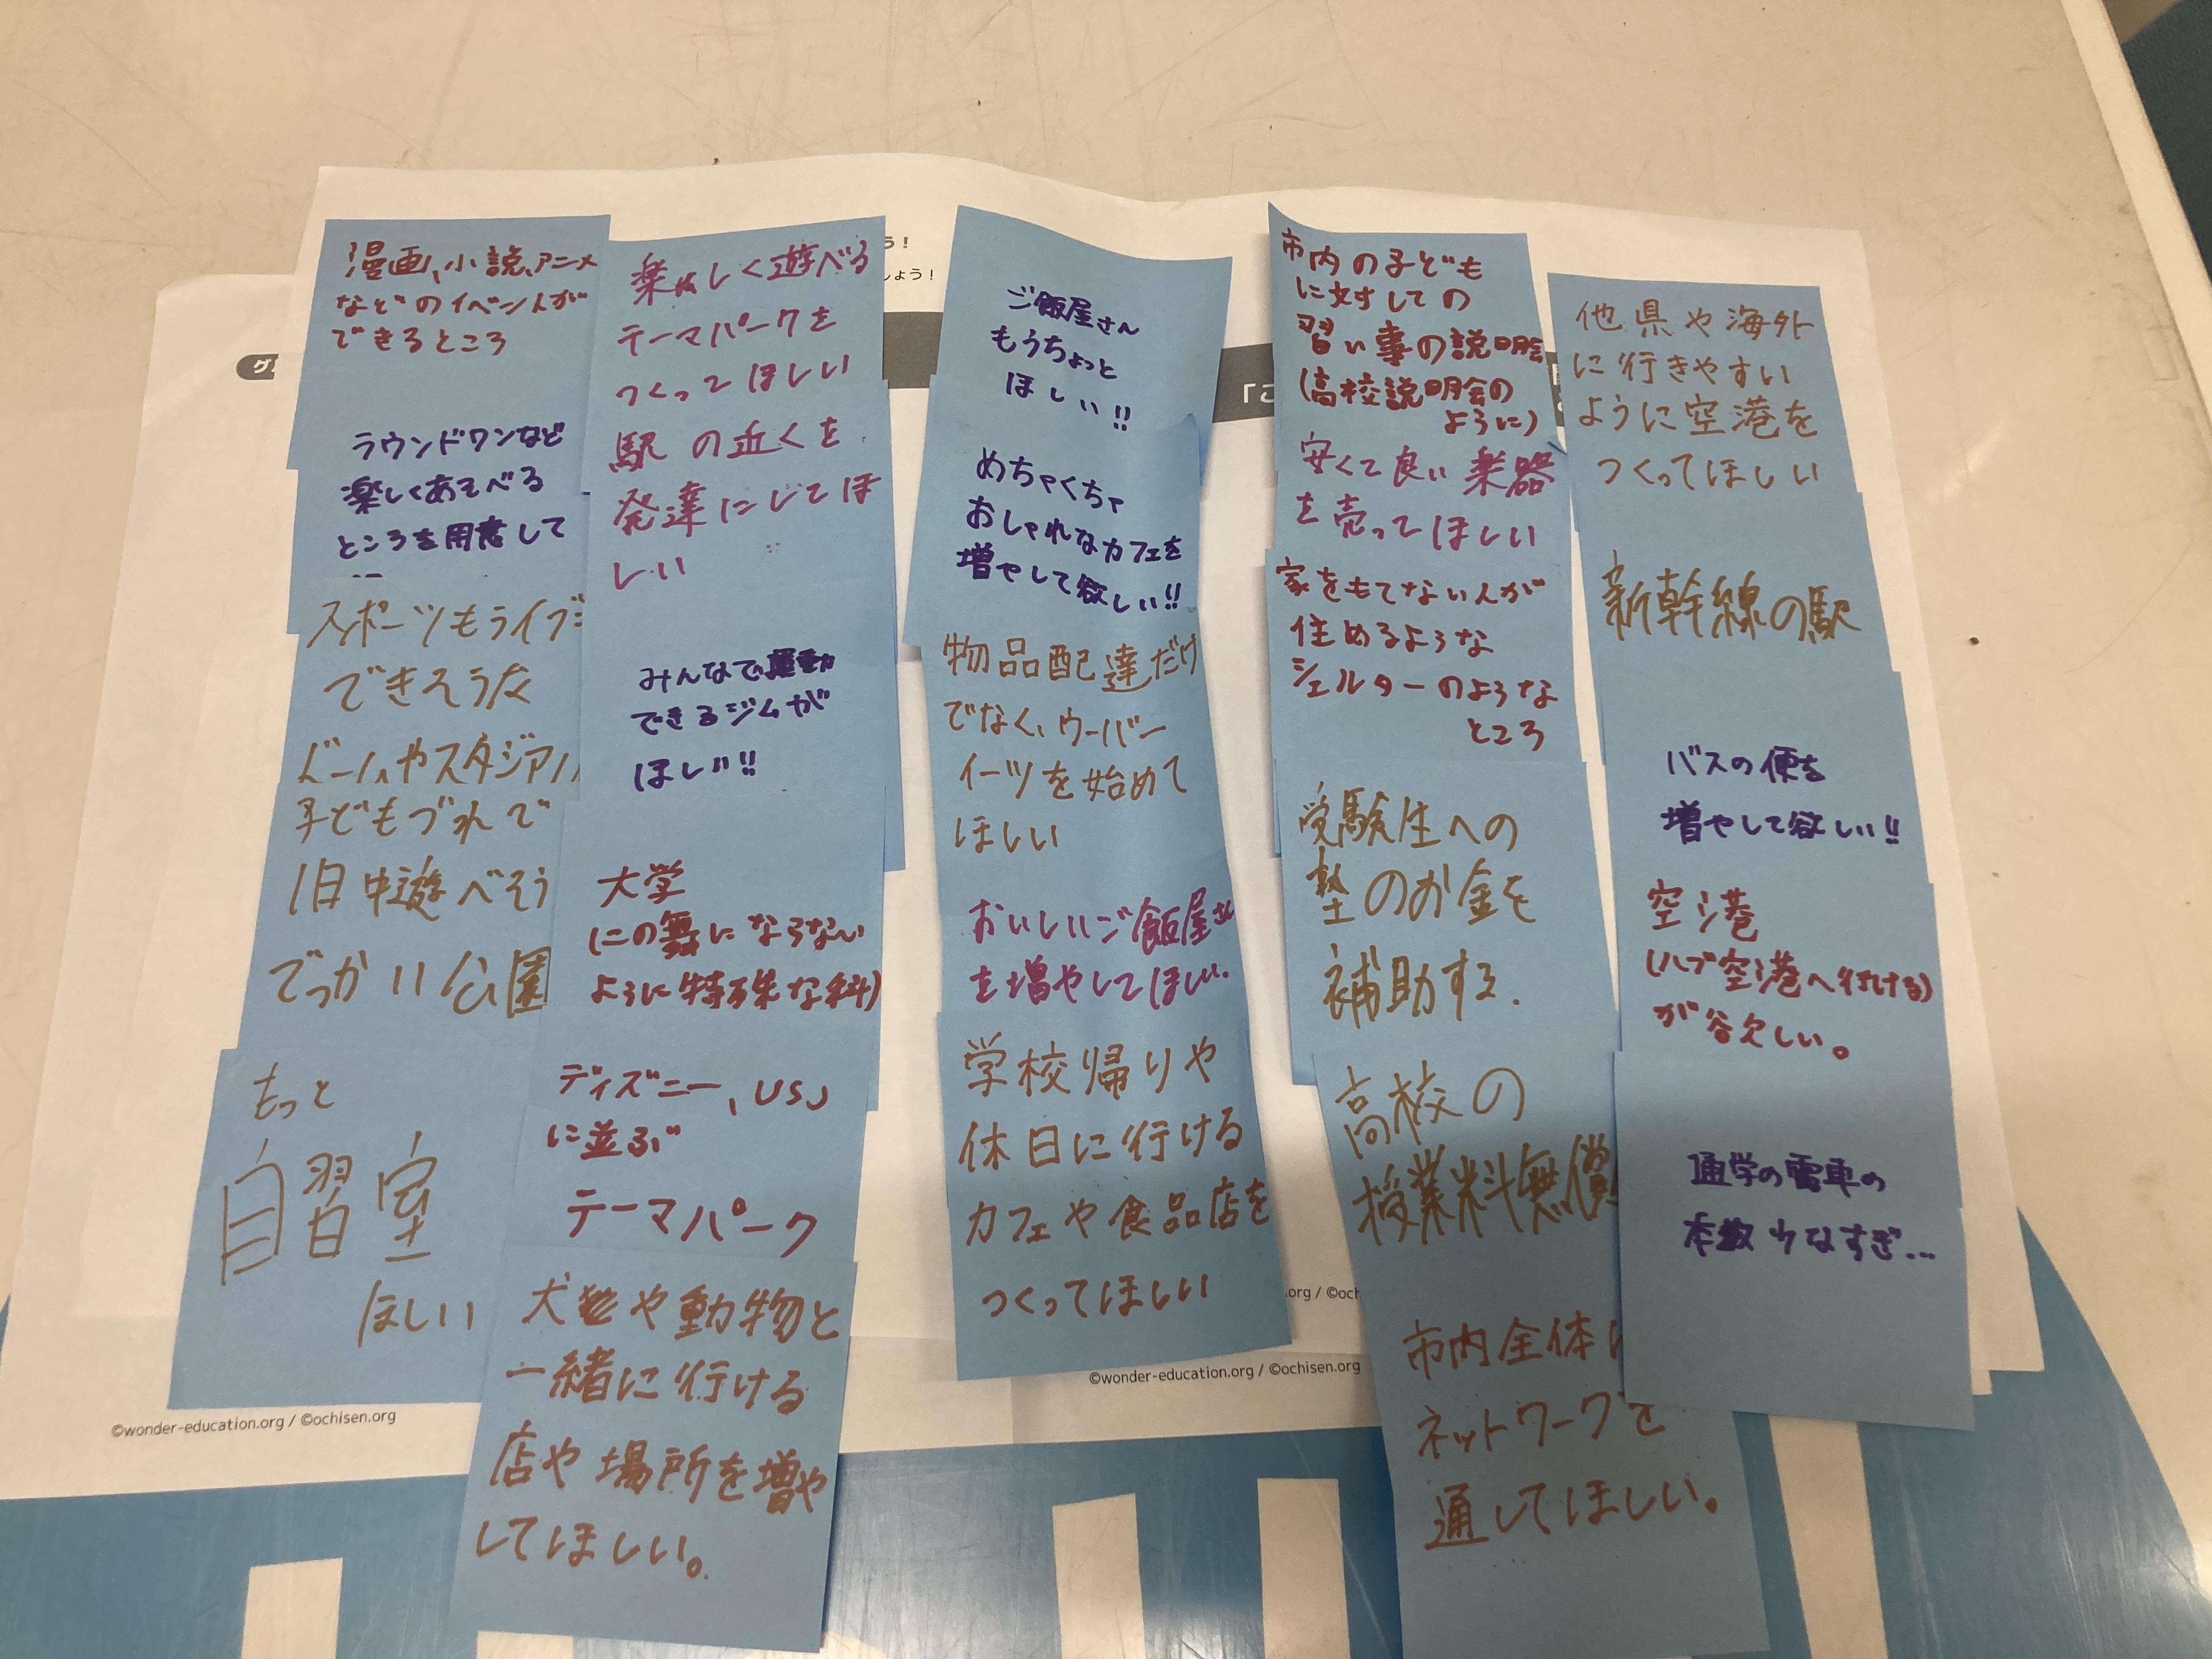 う！
しょう！
グ
「こ
漫画、小説、アニメ
などのイベントが
できるところ
ラウンドワンなど
楽しくあそべる
ところを用意して
スポーツもライブも
できそうな
ドームやスタジアム
子どもづれで
1日中遊べそう
でっかい公園
もっと
自習室
ほしい
楽しく遊べる
テーマパークを
つくってほしい
駅の近くを
発達にしてほ
しい
みんなで運動
できるジムが
ほしい!!
大学
(二の舞にならない
ように特殊な科)
ディズニー、USJ
に並ぶ
テーマパーク
犬や動物と
一緒に行ける
店や場所を増や
してほしい。
ご飯屋さん
もうちょっと
ほしい!!
めちゃくちゃ
おしゃれなカフェを
増やして欲しい!!
物品配達だけ
でなく、ウーバー
イーツを始めて
ほしい
おいしいご飯屋さん
を増やしてほしい。
学校帰りや
休日に行ける
カフェや食品店を
つくってほしい
市内の子ども
に対しての
習い事の説明会
(高校説明会の
ように)
安くて良い楽器
を売ってほしい
家をもてない人が
住めるような
シェルターのような
ところ
受験生への
塾のお金を
補助する.
高校の
授業料無償
市内全体に
ネットワークを
通してほしい。
他県や海外
に行きやすい
ように空港を
つくってほしい
新幹線の駅
バスの便を
増やして欲しい!!
空港
(ハブ空港へ行ける)
が欲しい。
通学の電車の
本数少なすぎ…
©wonder-education.org / ©ochisen.org
.org / ©och
©wonder-education.org / ©ochisen.org